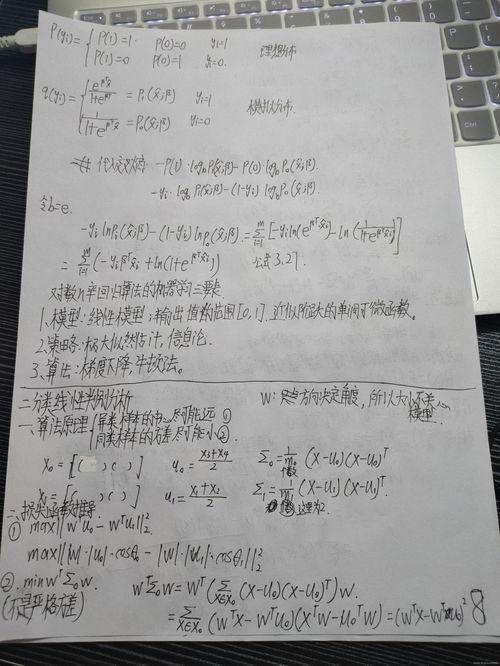 P(yᵢ)= { P(1)=1. P(0)=0 yᵢ=1
P(1)=0 P(0)=1 yᵢ=0. 理想分布
q(yᵢ)= { e^{βᵀx̂}/(1+e^{βᵀx̂}) = P₁(x̂;β) yᵢ=1
1/(1+e^{βᵀx̂}) = P₀(x̂;β) yᵢ=0 模拟分布.
代入交叉熵: -P(1)·log_b P₁(x̂;β)-P(0)·log_b P₀(x̂;β).
-yᵢ·log_b P₁(x̂;β)-(1-yᵢ)log_b P₀(x̂;β).
令b=e.
-yᵢ ln P₁(x̂;β)-(1-yᵢ) ln P₀(x̂;β).= Σᵢ₌₁ᵐ [-yᵢ ln(e^{βᵀx̂ᵢ})-ln(1/(1+e^{βᵀx̂ᵢ}))]
= Σᵢ₌₁ᵐ (-yᵢβᵀx̂ᵢ+ln(1+e^{βᵀx̂ᵢ})) 公式3.27.
对数几率回归算法的机器学习三要素
1. 模型:线性模型;输出值的范围[0,1].近似阶跃的单调可微函数。
2.策略:极大似然估计,信息论.
3.算法:梯度下降,牛顿法。
二分类线性判别分析 W: 方向决定角度,所以大小不
模型.
一、算法原理 { 异类样本的中心尽可能远 ①
同类样本的方差尽可能小 ②.
X₀=[( )( )] u₀=(x₃+x₄)/2 Σ₀=1/m₀ (X-u₀)(X-u₀)ᵀ
X₁=[( )( )] u₁=(x₁+x₂)/2 Σ₁=1/m₁ (X-u₁)(X-u₁)ᵀ.
这里为2.
二、损失函数推导
① max||wᵀu₀-wᵀu₁||₂².
max|| |w|·|u₀|·cosθ₀-|w|·|u₁|·cosθ₁||₂²
② min wᵀΣ₀w. wᵀΣ₀w=wᵀ(Σ_{x∈X₀} (x-u₀)(x-u₀)ᵀ)w.
(不是严格方差) = Σ_{x∈X₀} (wᵀx-wᵀu₀)(xᵀw-u₀ᵀw)=(wᵀx-wᵀu₀)²
8